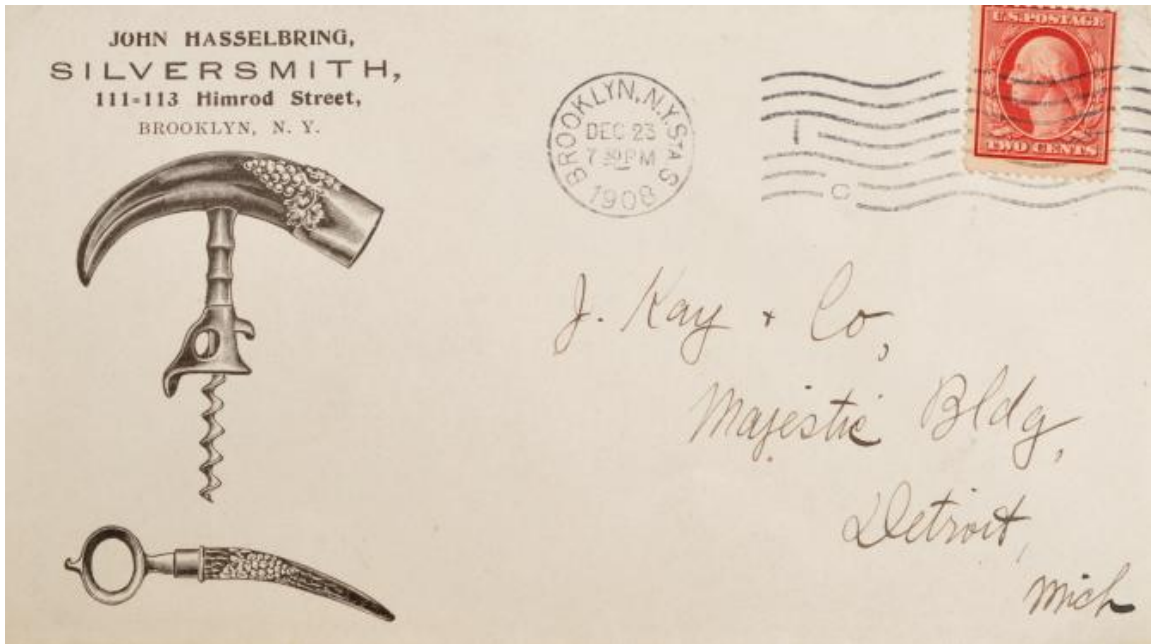 JOHN HASSELBRING,
SILVERSMITH,
111-113 Himrod Street,
BROOKLYN, N. Y.
BROOKLYN, N.Y. STA S
DEC 23
7 30 PM
1908
1
C
U.S. POSTAGE
TWO CENTS
J. Kay + Co,
Majestic Bldg,
Detroit,
Mich